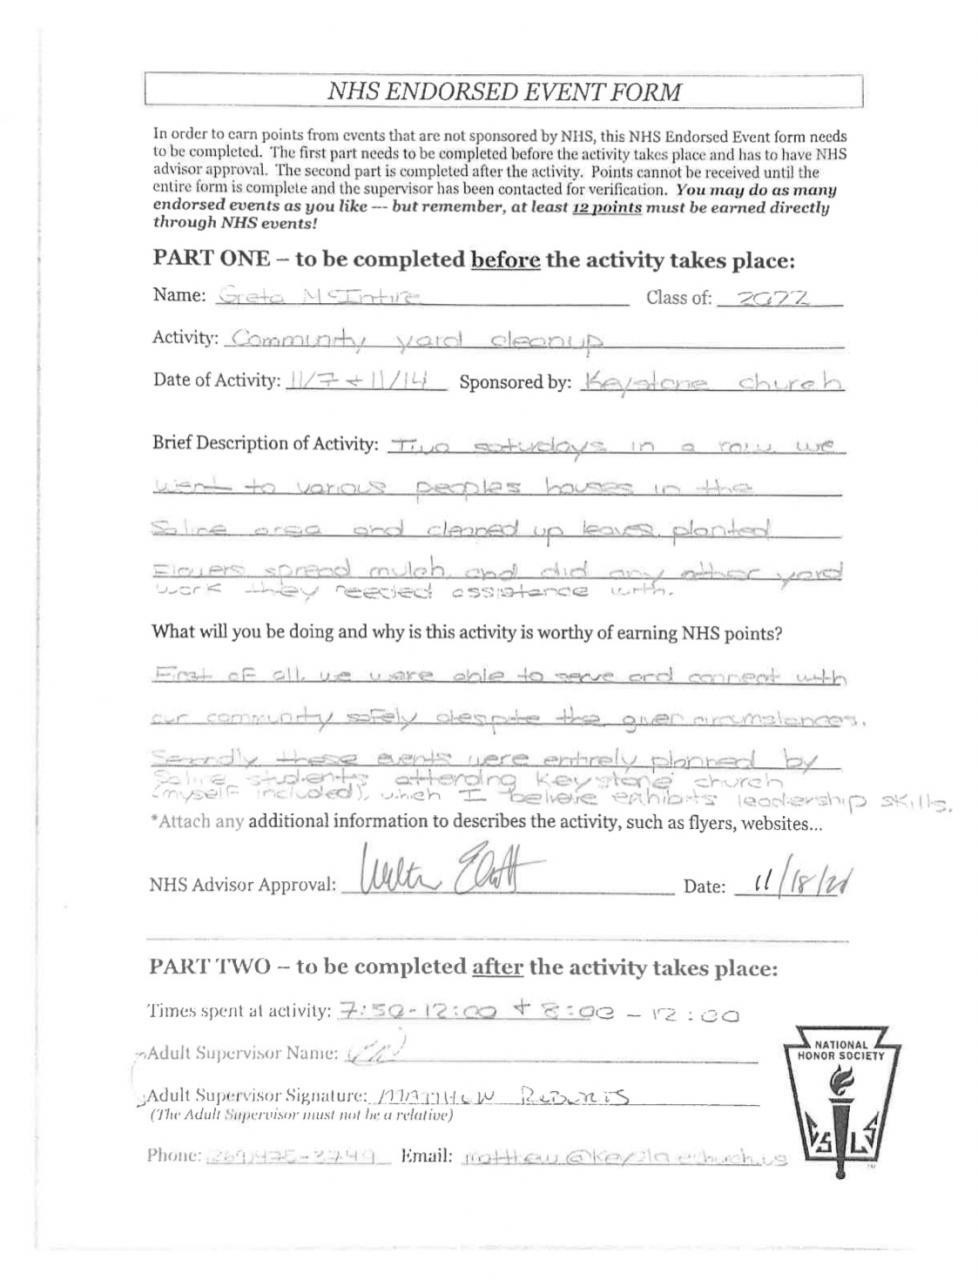 NHS ENDORSED EVENT FORM
In order to earn points from events that are not sponsored by NHS, this NHS Endorsed Event form needs
to be completed. The first part needs to be completed before the activity takes place and has to have NHS
advisor approval. The second part is completed after the activity. Points cannot be received until the
entire form is complete and the supervisor has been contacted for verification. You may do as many
endorsed events as you like --- but remember, at least 12 points must be earned directly
through NHS events!
PART ONE – to be completed before the activity takes place:
Name: Greta McIntire Class of: 2022
Activity: Community yard cleanup
Date of Activity: 11/7 + 11/14 Sponsored by: Keystone church
Brief Description of Activity: Two saturdays in a row, we
went to various peoples houses in the
Saline area and cleaned up leaves, planted
Flowers, spread mulch, and did any other yard
work they needed assistance with.
What will you be doing and why is this activity is worthy of earning NHS points?
First of all, we were able to serve and connect with
our community safely despite the given circumstances.
Secondly these events were entirely planned by
Saline students attending Keystone church
(myself included), which I believe exhibits leadership skills.
*Attach any additional information to describes the activity, such as flyers, websites...
NHS Advisor Approval: Date: 11/18/20
PART TWO – to be completed after the activity takes place:
Times spent at activity: 7:50-12:00 + 8:00-12:00
Adult Supervisor Name:
Adult Supervisor Signature: MATTHEW
(The Adult Supervisor must not be a relative)
Phone: Email:
NATIONAL
HONOR SOCIETY
C S L S
TM